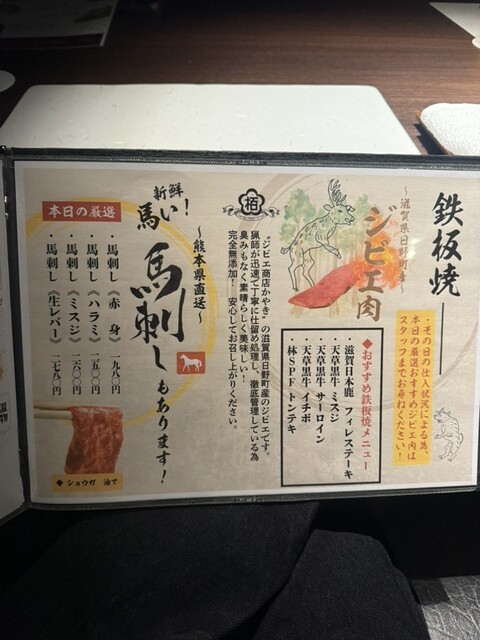 鉄板焼
・その日の仕入状況による為、
本日の厳選おすすめジビエ肉は
スタッフまでお尋ねください！
～滋賀県日野町産～
ジビエ肉
◆おすすめ鉄板焼メニュー
滋賀日本鹿 フィレステーキ
・天草黒牛 ミスジ
・天草黒牛 サーロイン
・天草黒牛 イチボ
・林SPF トンテキ
"ジビエ商店かやき"の滋賀県日野町産のジビエです。
猟師が迅速で丁寧に仕留め処理し、徹底管理している為
臭みもなく素晴らしく美味しい！
完全無添加！ 安心してお召し上がりください。
～熊本県直送～
新鮮
馬い！
馬刺しもあります！
本日の厳選
・馬刺し《赤 身》 一九八〇
・馬刺し《ハラミ》 二五〇〇
・馬刺し《ミスジ》 二六〇〇
・馬刺し《生レバー》 二七八〇
◆ショウガ 油で